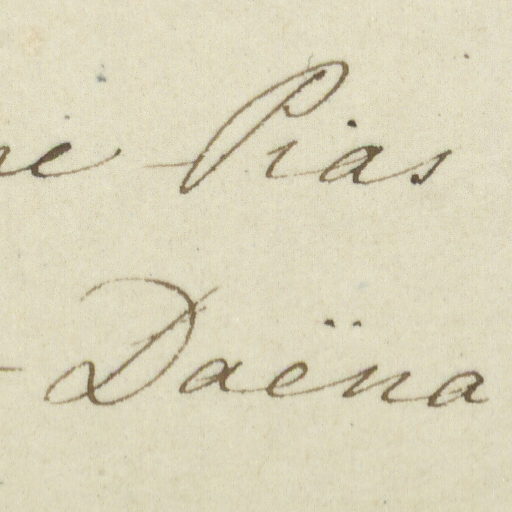 Pias
Daëna